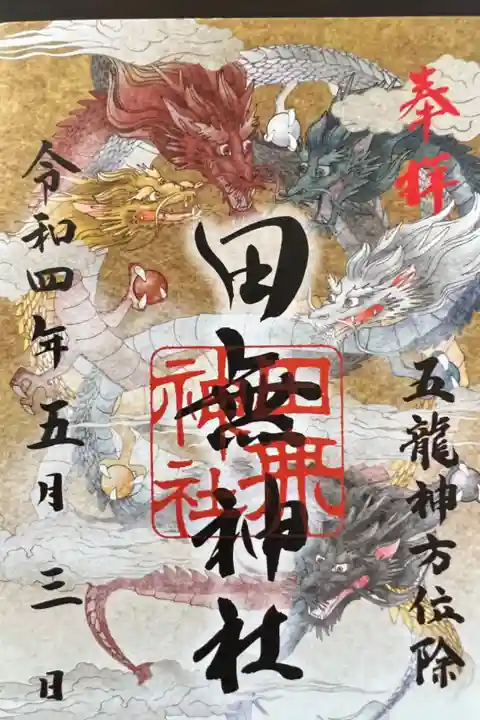 奉拝
五龍神方位除
田無神社
田無神社
令和四年五月三日